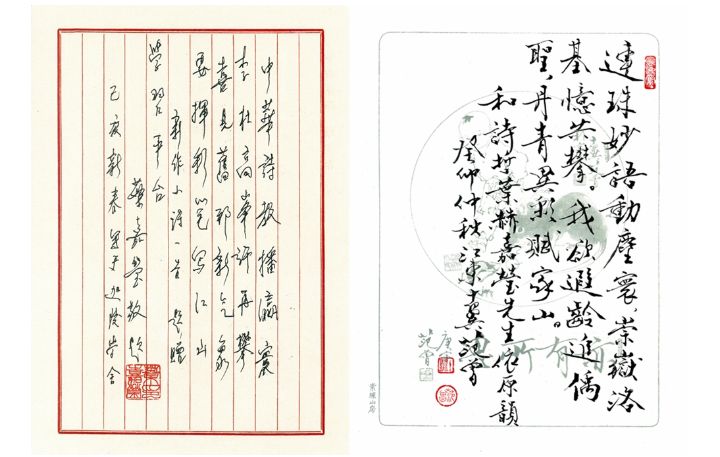 中華詩教播瀛寰
李杜高峰許再攀
喜見舊邦新氣象
要揮彩筆寫江山
新作小詩一首 題贈
學習平台
葉嘉瑩敬題
己亥新春寫於迦陵學舍
連珠妙語動塵寰，崇嶽洛
基憶共攀。我欲遐齡進偶
聖，丹青異彩賦家山。
和詩哲葉赫嘉瑩先生依原韻
癸卯仲秋江東十翼范曾
范曾